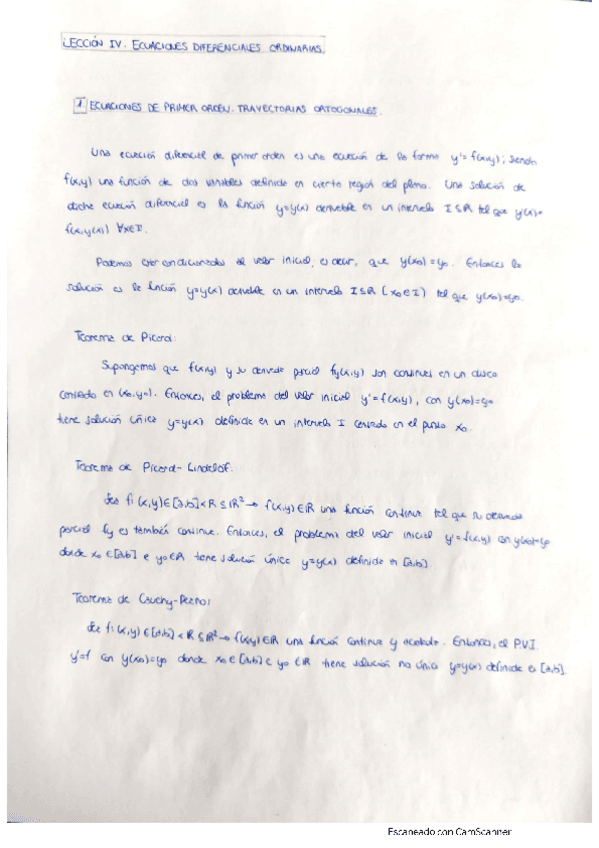 LECCIÓN IV. ECUACIONES DIFERENCIALES ORDINARIAS.
1 ECUACIONES DE PRIMER ORDEN. TRAYECTORIAS ORTOGONALES.
Una ecuación diferencial de primer orden es una ecuación de la forma y'= f(x,y); siendo
f(x,y) una función de dos variables definida en cierta región del plano. Una solución de
dicha ecuación diferencial es la función y=y(x) derivable en un intervalo I⊆R tal que y'(x)=
f(x,y(x)) ∀x∈I.
Podemos estar condicionados al valor inicial, es decir, que y(x₀)=y₀. Entonces la
solución es la función y=y(x) derivable en un intervalo I⊆R (x₀∈I) tal que y(x₀)=y₀.
Teorema de Picard:
Supongamos que f(x,y) y su derivada parcial fy(x,y) son continuas en un disco
centrado en (x₀,y₀). Entonces, el problema del valor inicial y'=f(x,y), con y(x₀)=y₀
tiene solución única y=y(x) definida en un intervalo I centrado en el punto x₀.
Teorema de Picard-Lindelöf:
Sea f: (x,y)∈[a,b]×R⊆R²→ f(x,y)∈R una función continua tal que su derivada
parcial fy es también continua. Entonces, el problema del valor inicial y'=f(x,y) con y(x₀)=y₀
donde x₀∈[a,b] e y₀∈R tiene solución única y=y(x) definida en [a,b].
Teorema de Cauchy-Peano:
Sea f: (x,y)∈[a,b]×R⊆R²→ f(x,y)∈R una función continua y acotada. Entonces, el PVI
y'=f con y(x₀)=y₀ donde x₀∈[a,b] e y₀∈R tiene solución no única y=y(x) definida en [a,b].
Escaneado con CamScanner